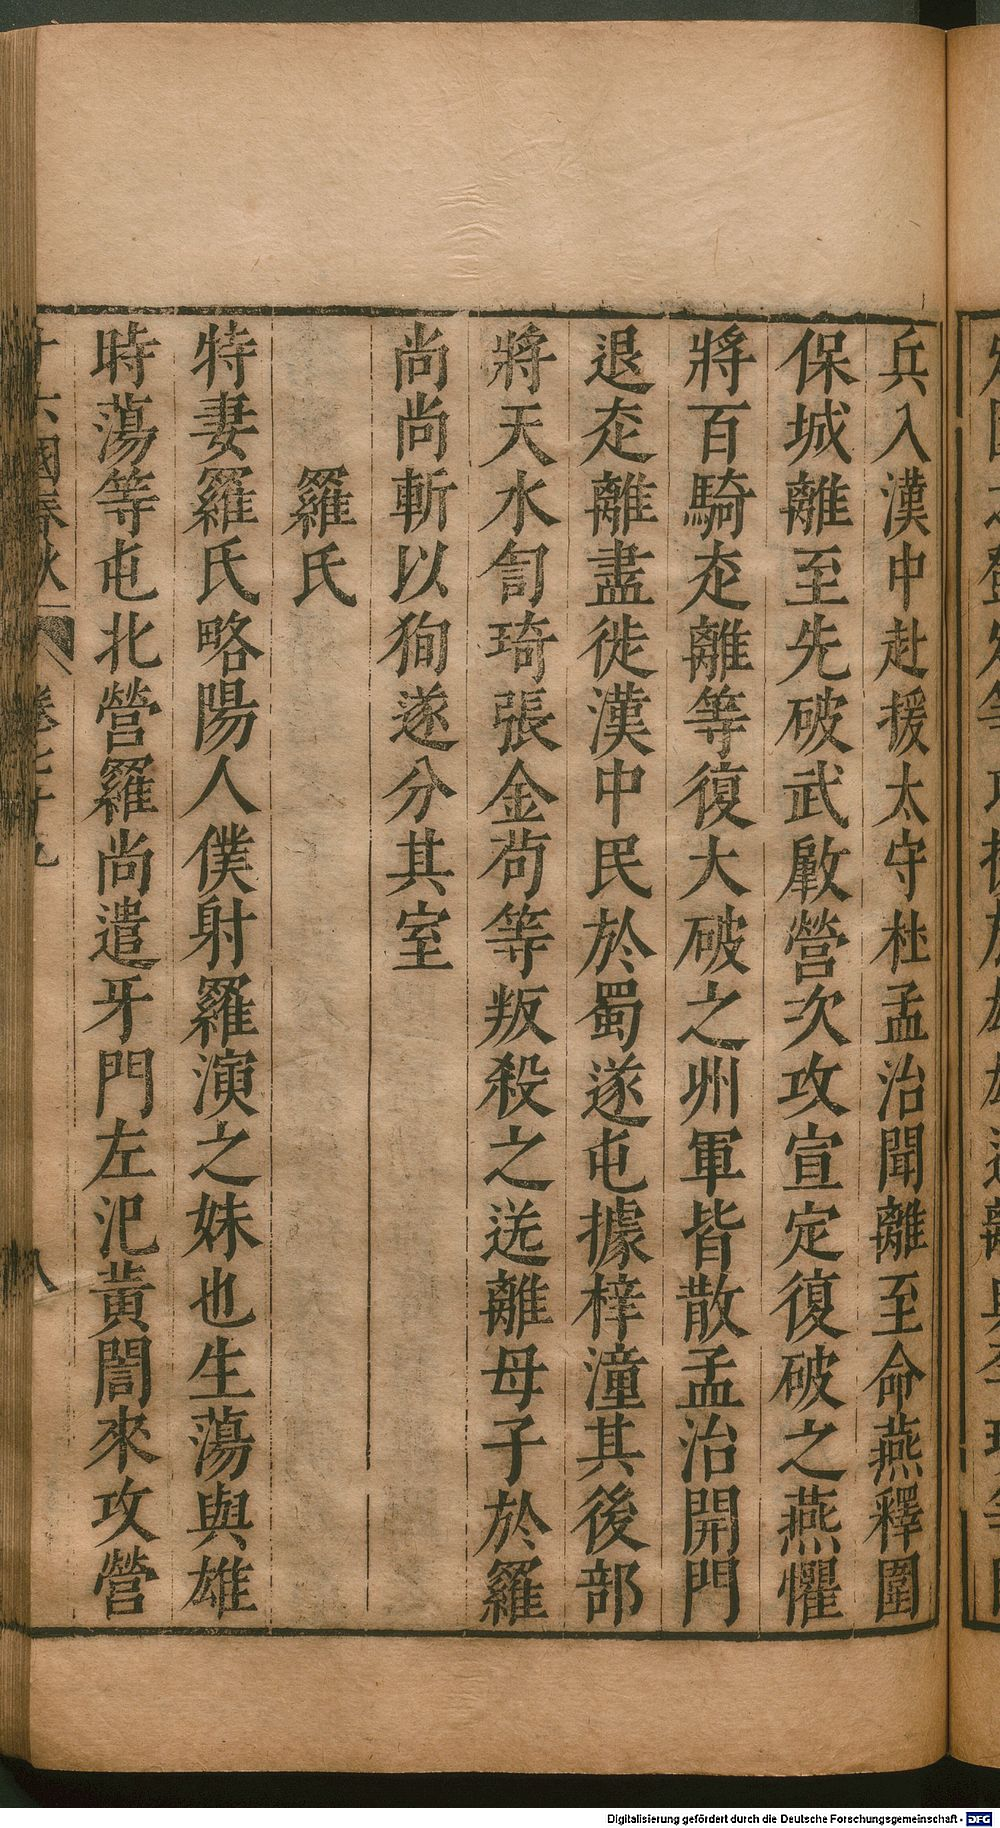 兵入漢中赴援太守杜孟治聞離至命燕釋圍
保城離至先破武厰營次攻宣定復破之燕懼
將百騎㐬離等復大破之州軍皆散孟治開門
退㐬離盡徙漢中民於蜀遂屯據梓潼其後部
將天水訇琦張金茍等叛殺之送離母子於羅
尚尚斬以狥遂分其室
羅氏
特妻羅氏略陽人僕射羅演之妹也生蕩與雄
時蕩等屯北營羅尚遣牙門左汜黃誾來攻營
十六國春秋
卷七十九
八
Digitalisierung gefördert durch die Deutsche Forschungsgemeinschaft - DFG